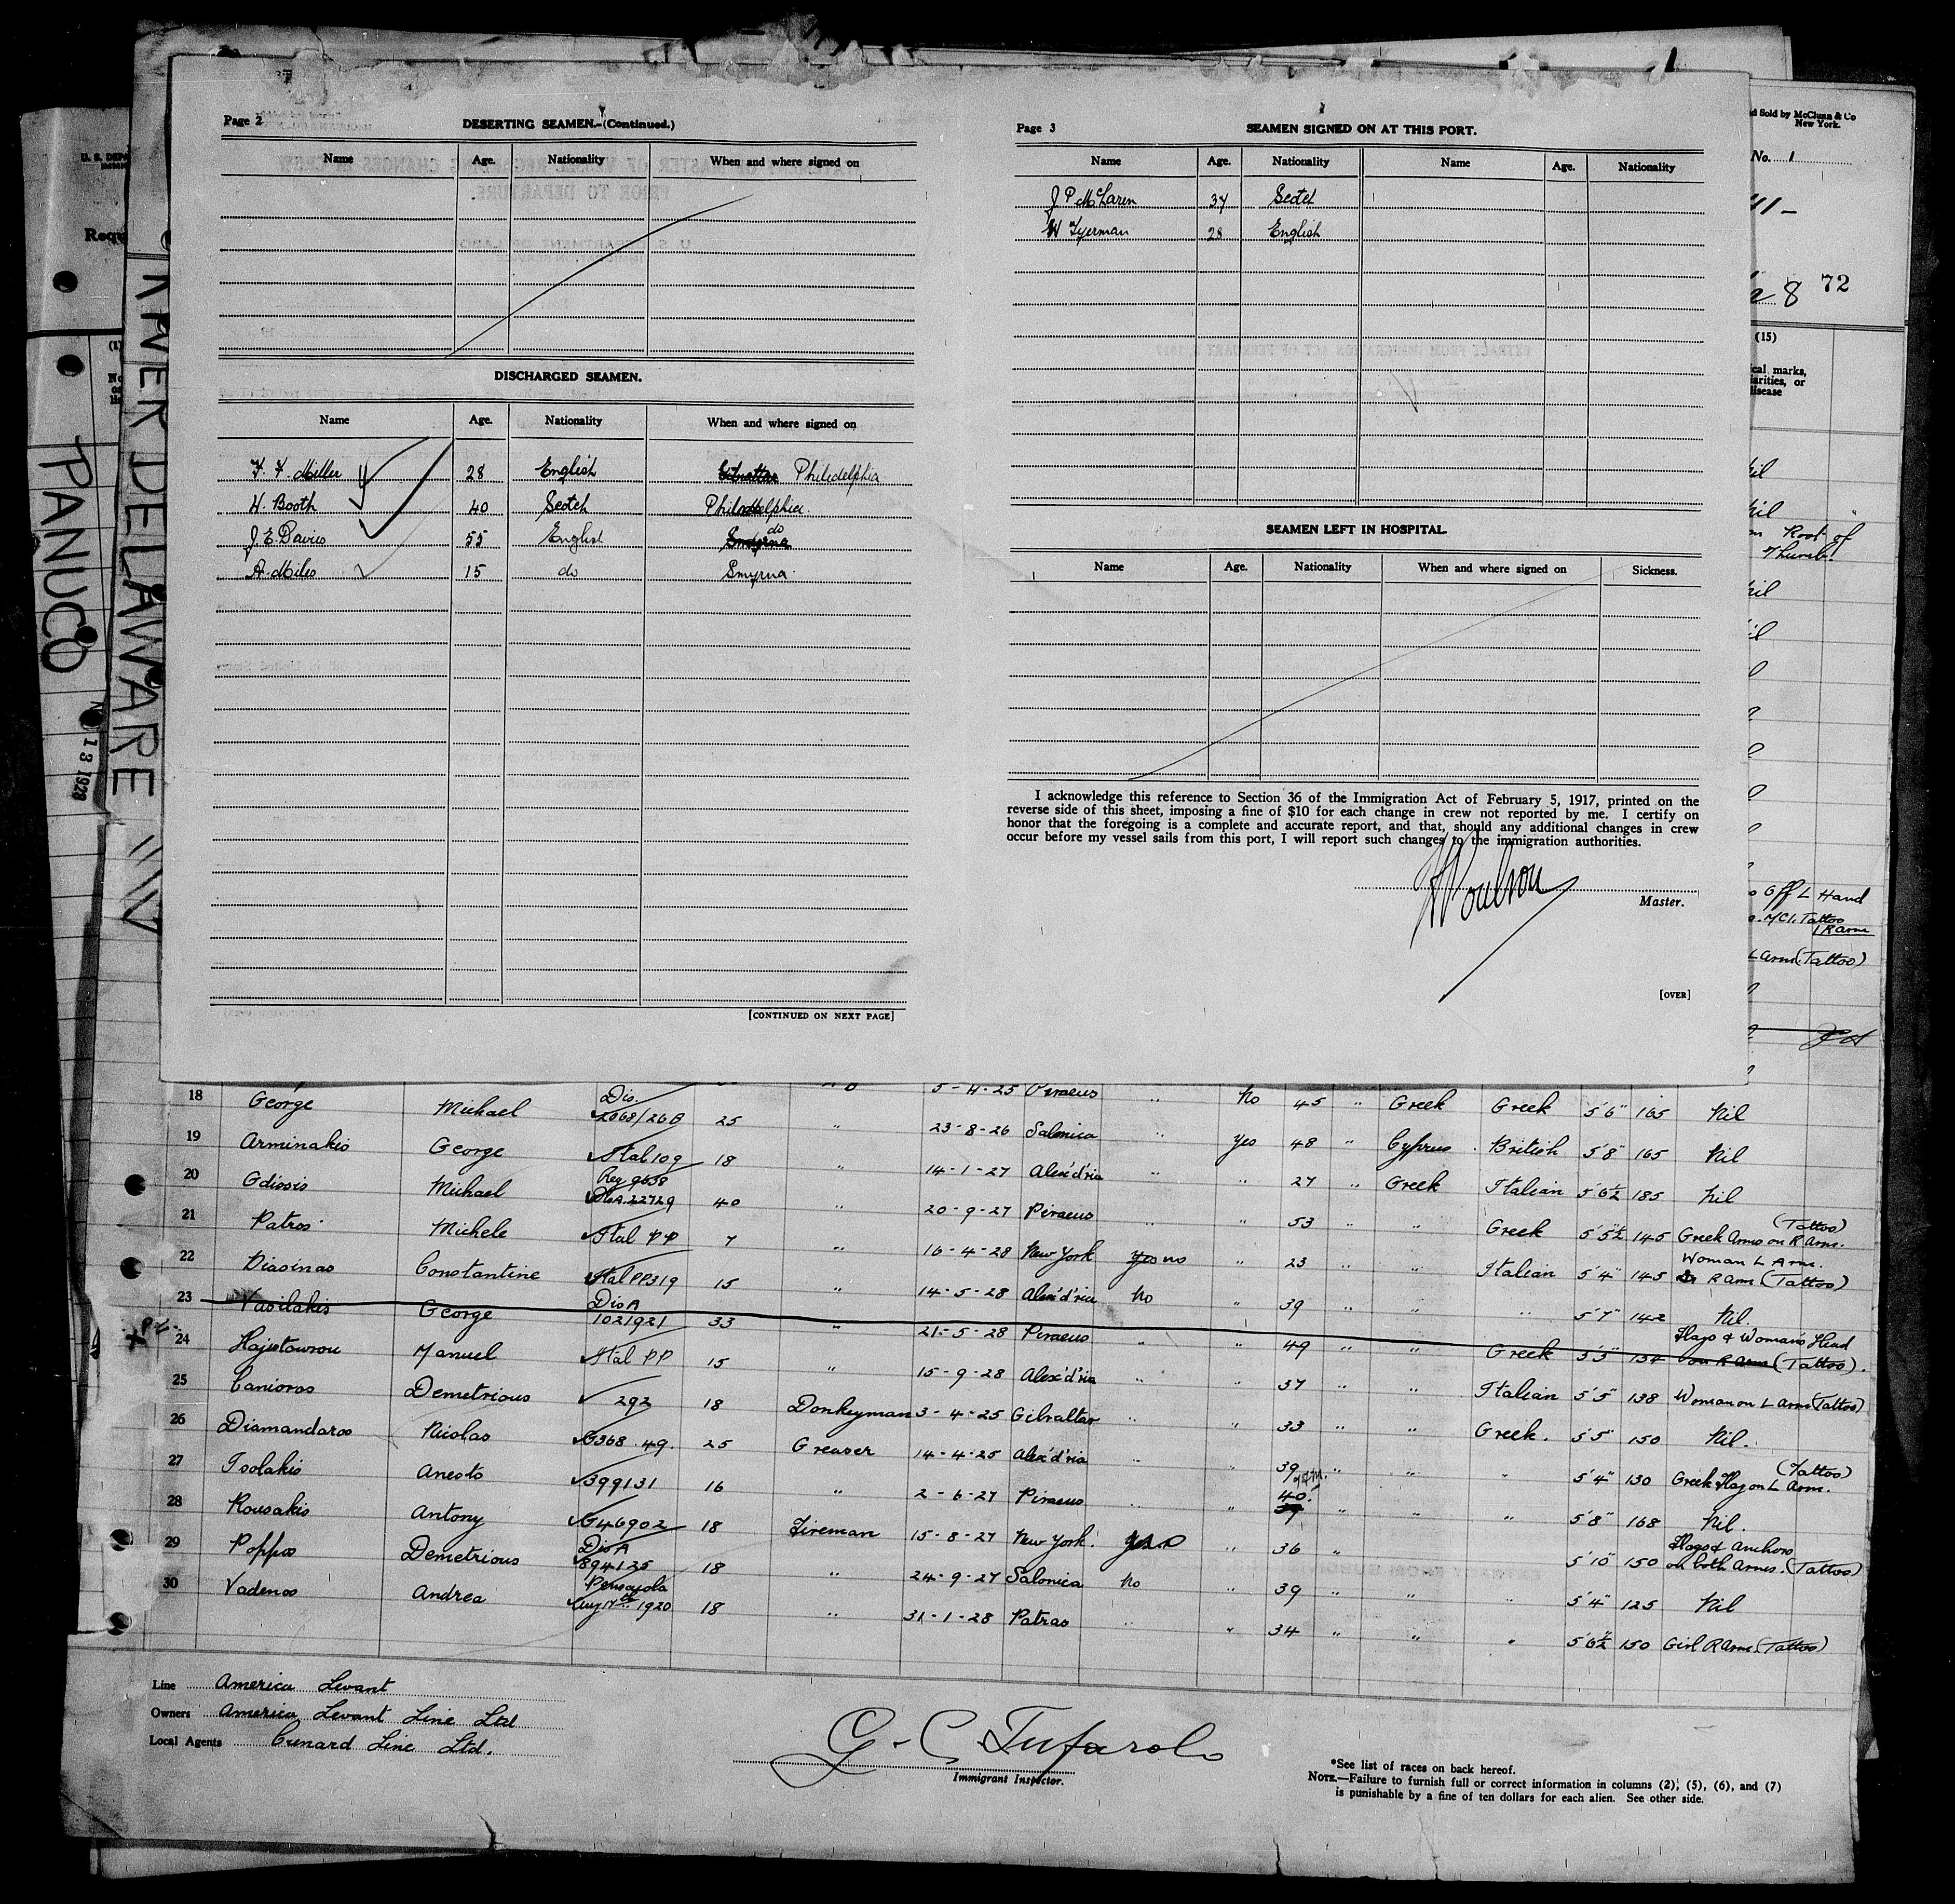 Page 2
DESERTING SEAMEN.—(Continued.)
Name Age. Nationality When and where signed on
DISCHARGED SEAMEN.
Name Age. Nationality When and where signed on
F. F. Miller 28 English Gibraltar Philedelphia
H. Booth 40 Scotch Philedelphia.
J. E. Davies 55 English Smyrna do
A. Miles 15 do Smyrna.
[CONTINUED ON NEXT PAGE]
Page 3
SEAMEN SIGNED ON AT THIS PORT.
Name Age. Nationality Name Age. Nationality
J P McLaren 34 Scotch
W Tyerman 28 English
SEAMEN LEFT IN HOSPITAL.
Name Age. Nationality When and where signed on Sickness.
I acknowledge this reference to Section 36 of the Immigration Act of February 5, 1917, printed on the
reverse side of this sheet, imposing a fine of $10 for each change in crew not reported by me. I certify on
honor that the foregoing is a complete and accurate report, and that, should any additional changes in crew
occur before my vessel sails from this port, I will report such changes to the immigration authorities.
Poulson
Master.
[OVER]
U. S. DEPA
Requ
(1)
PANUCO
13 1928
RIVER DELAWARE
d Sold by McClunn & Co
New York.
No. 1
8 72
(15)
cal marks,
iarities, or
disease
Root of
Thumb!
Off L Hand
Tattoo
R Arm
L Arm (Tattoo)
5-4-25 Piraeus
18 George Michael Dis. 2068/26B 25 " 23-8-26 Salonica " No 45 " Greek Greek 5'6" 165 Nil
19 Arminakis George Ital 109 18 " 14-1-27 Alex'd'ria " Yes 48 " Cyprus British 5'8" 165 Nil
20 Gdissis Michael Reg 9638 Dis A.22729 40 " 20-9-27 Piraeus " " 27 " Greek Italian 5'6½ 185 Nil
21 Patros Michele Ital PP 7 " 16-4-28 New York Yes no " 53 " " Greek 5'5½ 145 Greek Arms on R Arm. (Tattoo)
22 Diasinas Constantine Ital PP319 15 " 14-5-28 Alex'd'ria No " 23 " " Italian 5'4" 145 Woman L Arm. & R Arm (Tattoo)
23 Vasilakis George Dis A 1021921 33 " 21-5-28 Piraeus " " 39 " " " 5'7" 142 Nil.
24 Hajistavrou Manuel Ital PP 15 " 15-9-28 Alex'd'ria " " 49 " " Greek 5'5" 134 Flags & Womans Head on R Arm (Tattoo).
25 Canioros Demetrious 292 18 Donkeyman 3-4-25 Gibraltar " " 37 " " Italian 5'5" 138 Woman on L Arm (Tattoo)
26 Diamandaros Nicolas G368.49. 25 Greaser 14-4-25 Alex'd'ria " " 33 " " Greek. 5'5" 150 Nil.
27 Tsolakis Anesto 399131 16 " 2-6-27 Piraeus " " 39 " " " 5'4" 130 Greek Flag on L Arm. (Tattoo)
28 Rousakis Antony G46902 18 Fireman 15-8-27 New York. " 40. " " " 5'8" 168 Nil.
29 Poppos Demetrious Dis A 894125 18 " 24-9-27 Salonica No " 36 " 5'10" 150 Flags & Anchors on both Arms. (Tattoo)
30 Vadenos Andrea Pensacola Aug 17th 1920 18 " 31-1-28 Patras " " 39 " " " 5'4" 125 Nil
" 34 " " " 5'6½" 150 Girl R Arm (Tattoo)
Line America Levant
Owners America Levant Line Ltd
Local Agents Cunard Line Ltd.
G. C. Tufarolo
Immigrant Inspector.
*See list of races on back hereof.
NOTE.—Failure to furnish full or correct information in columns (2), (5), (6), and (7)
is punishable by a fine of ten dollars for each alien. See other side.